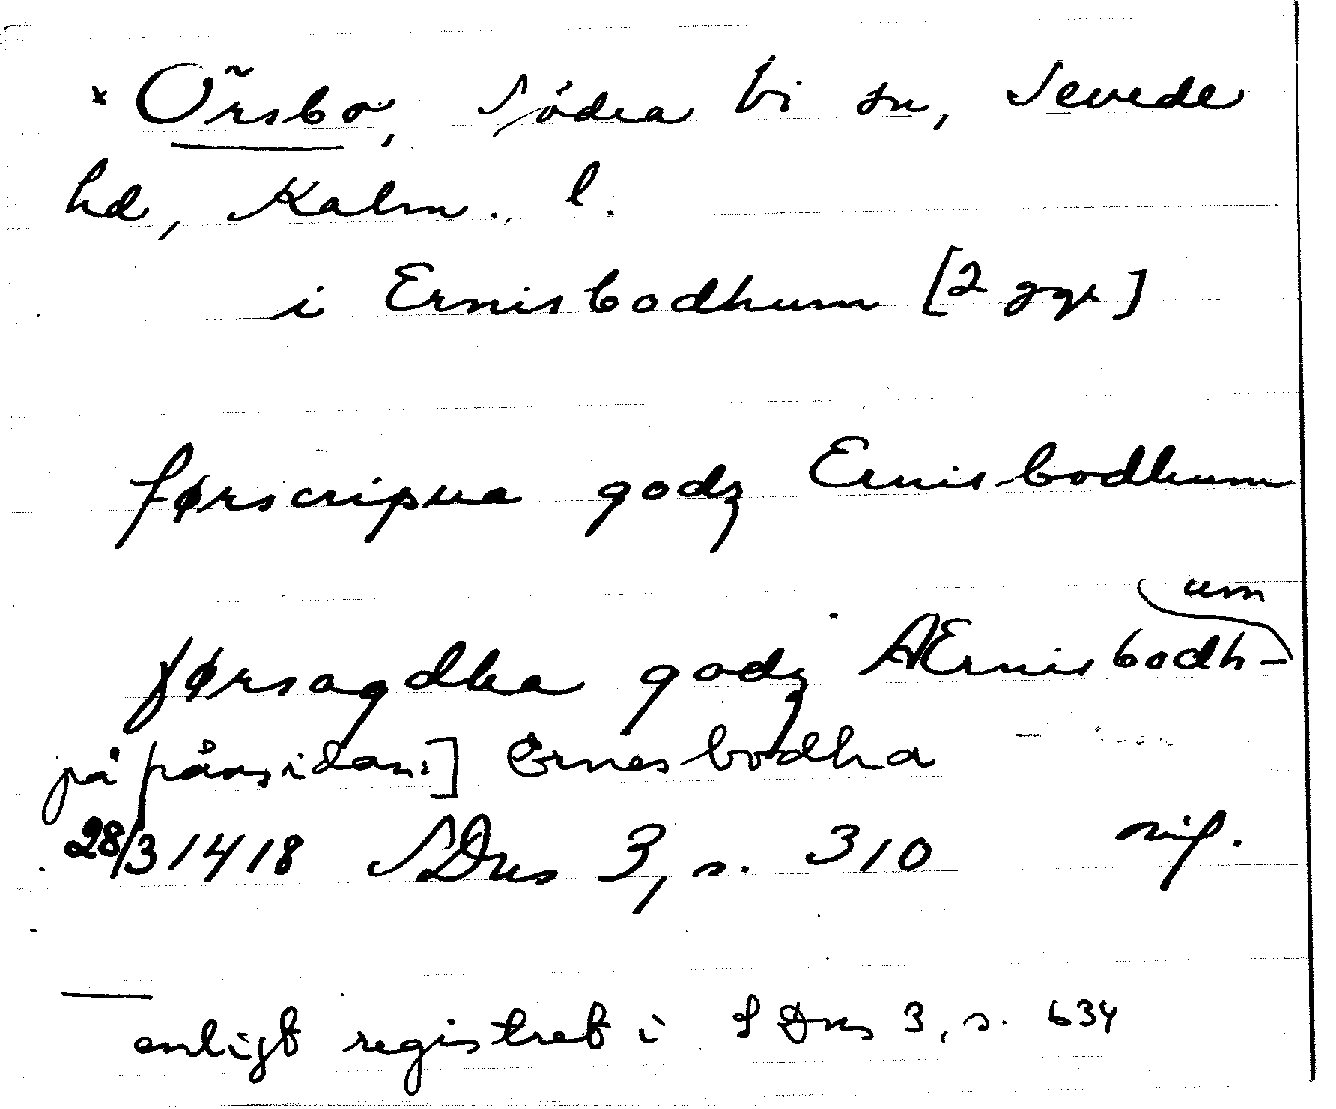 * Örsbo, Södra Vi sn, Sevede
hd, Kalm. l.
i Ernisbodhum [2 ggr]
førscripna godz Ernisbodhum
førsagdha godz Ærnisbodh-
um
på frånsidan:] Ernesbodha
28/3 1418 SDns 3, s. 310 nif.
enligt registret i SDns 3, s. 634